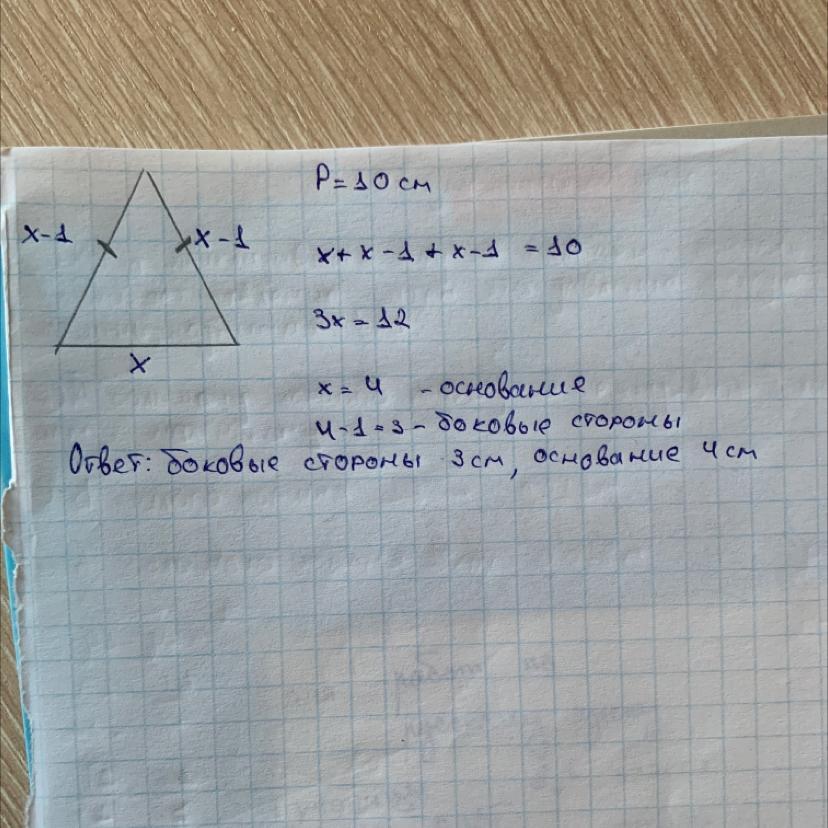 P = 10 см
x-1
x-1
x + x - 1 + x - 1 = 10
3x = 12
x
x = 4 - основание
4 - 1 = 3 - боковые стороны
Ответ: боковые стороны 3 см, основание 4 см